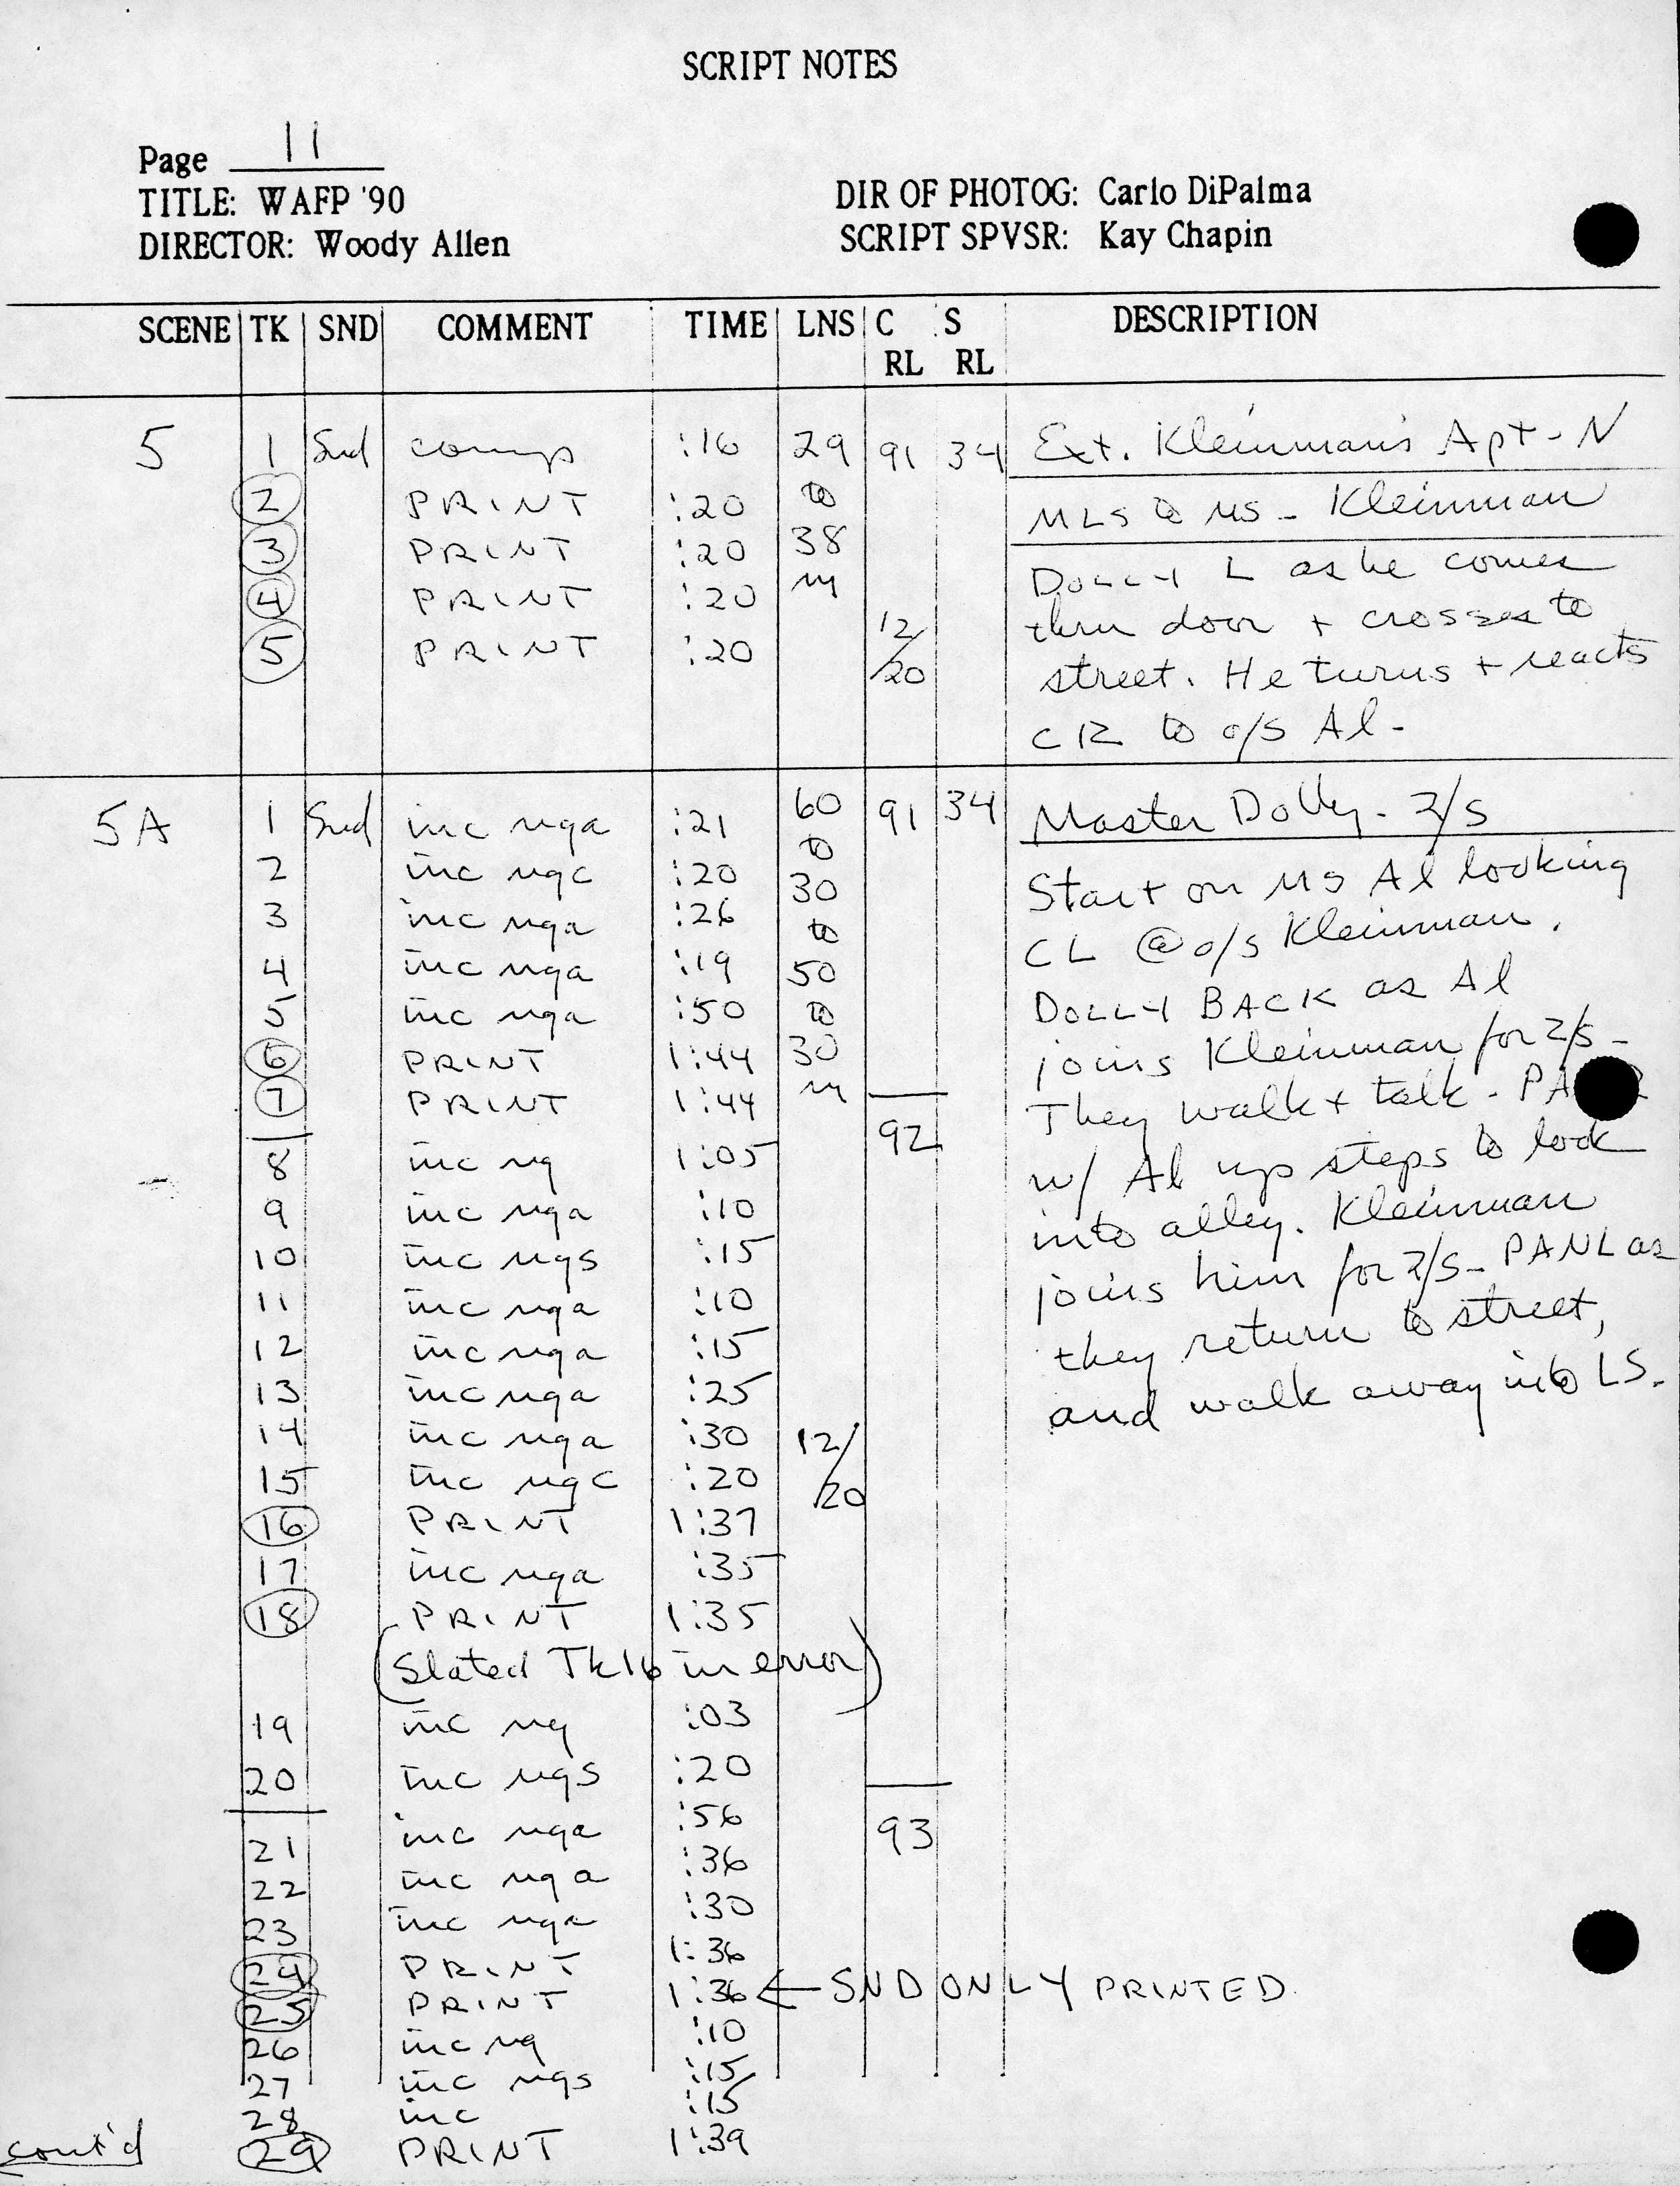 SCRIPT NOTES
Page 11
TITLE: WAFP '90
DIRECTOR: Woody Allen
DIR OF PHOTOG: Carlo DiPalma
SCRIPT SPVSR: Kay Chapin
SCENE TK SND COMMENT TIME LNS C RL S RL DESCRIPTION
5 1 Snd comp :16 29 91 34 Ext. Kleinman's Apt - N
2 PRINT :20 to MLS to MS - Kleinman
3 PRINT :20 38 DOLLY L as he comes
4 PRINT :20 m thru door + crosses to
5 PRINT :20 12/20 street. He turns + reacts
CR to o/s Al -
5A 1 Snd inc nga :21 60 91 34 Master Dolly - 2/S
2 inc ngc :20 to Start on MS Al looking
3 inc nga :26 30 CL @ o/s Kleinman.
4 inc nga :19 to DOLLY BACK as Al
5 inc nga :50 50 joins Kleinman for 2/S -
6 PRINT 1:44 to They walk + talk - PAN
7 PRINT 1:44 30 m w/ Al up steps to look
8 inc ng 1:05 92 into alley. Kleinman
9 inc nga :10 joins him for 2/S - PAN L as
10 inc ngs :15 they return to street,
11 inc nga :10 and walk away into LS.
12 inc nga :15
13 inc nga :25
14 inc nga :30 12/
15 inc ngc :20 /20
16 PRINT 1:37
17 inc nga :35
18 PRINT 1:35
(Slated Tk 16 in error)
19 inc ng :03
20 inc ngs :20
21 inc nga :56 93
22 inc nga :36
23 inc nga :30
24 PRINT 1:36
25 PRINT 1:36 ← SND ONLY PRINTED
26 inc ng :10
27 inc ngs :15
28 inc :15
cont'd 29 PRINT 1:39